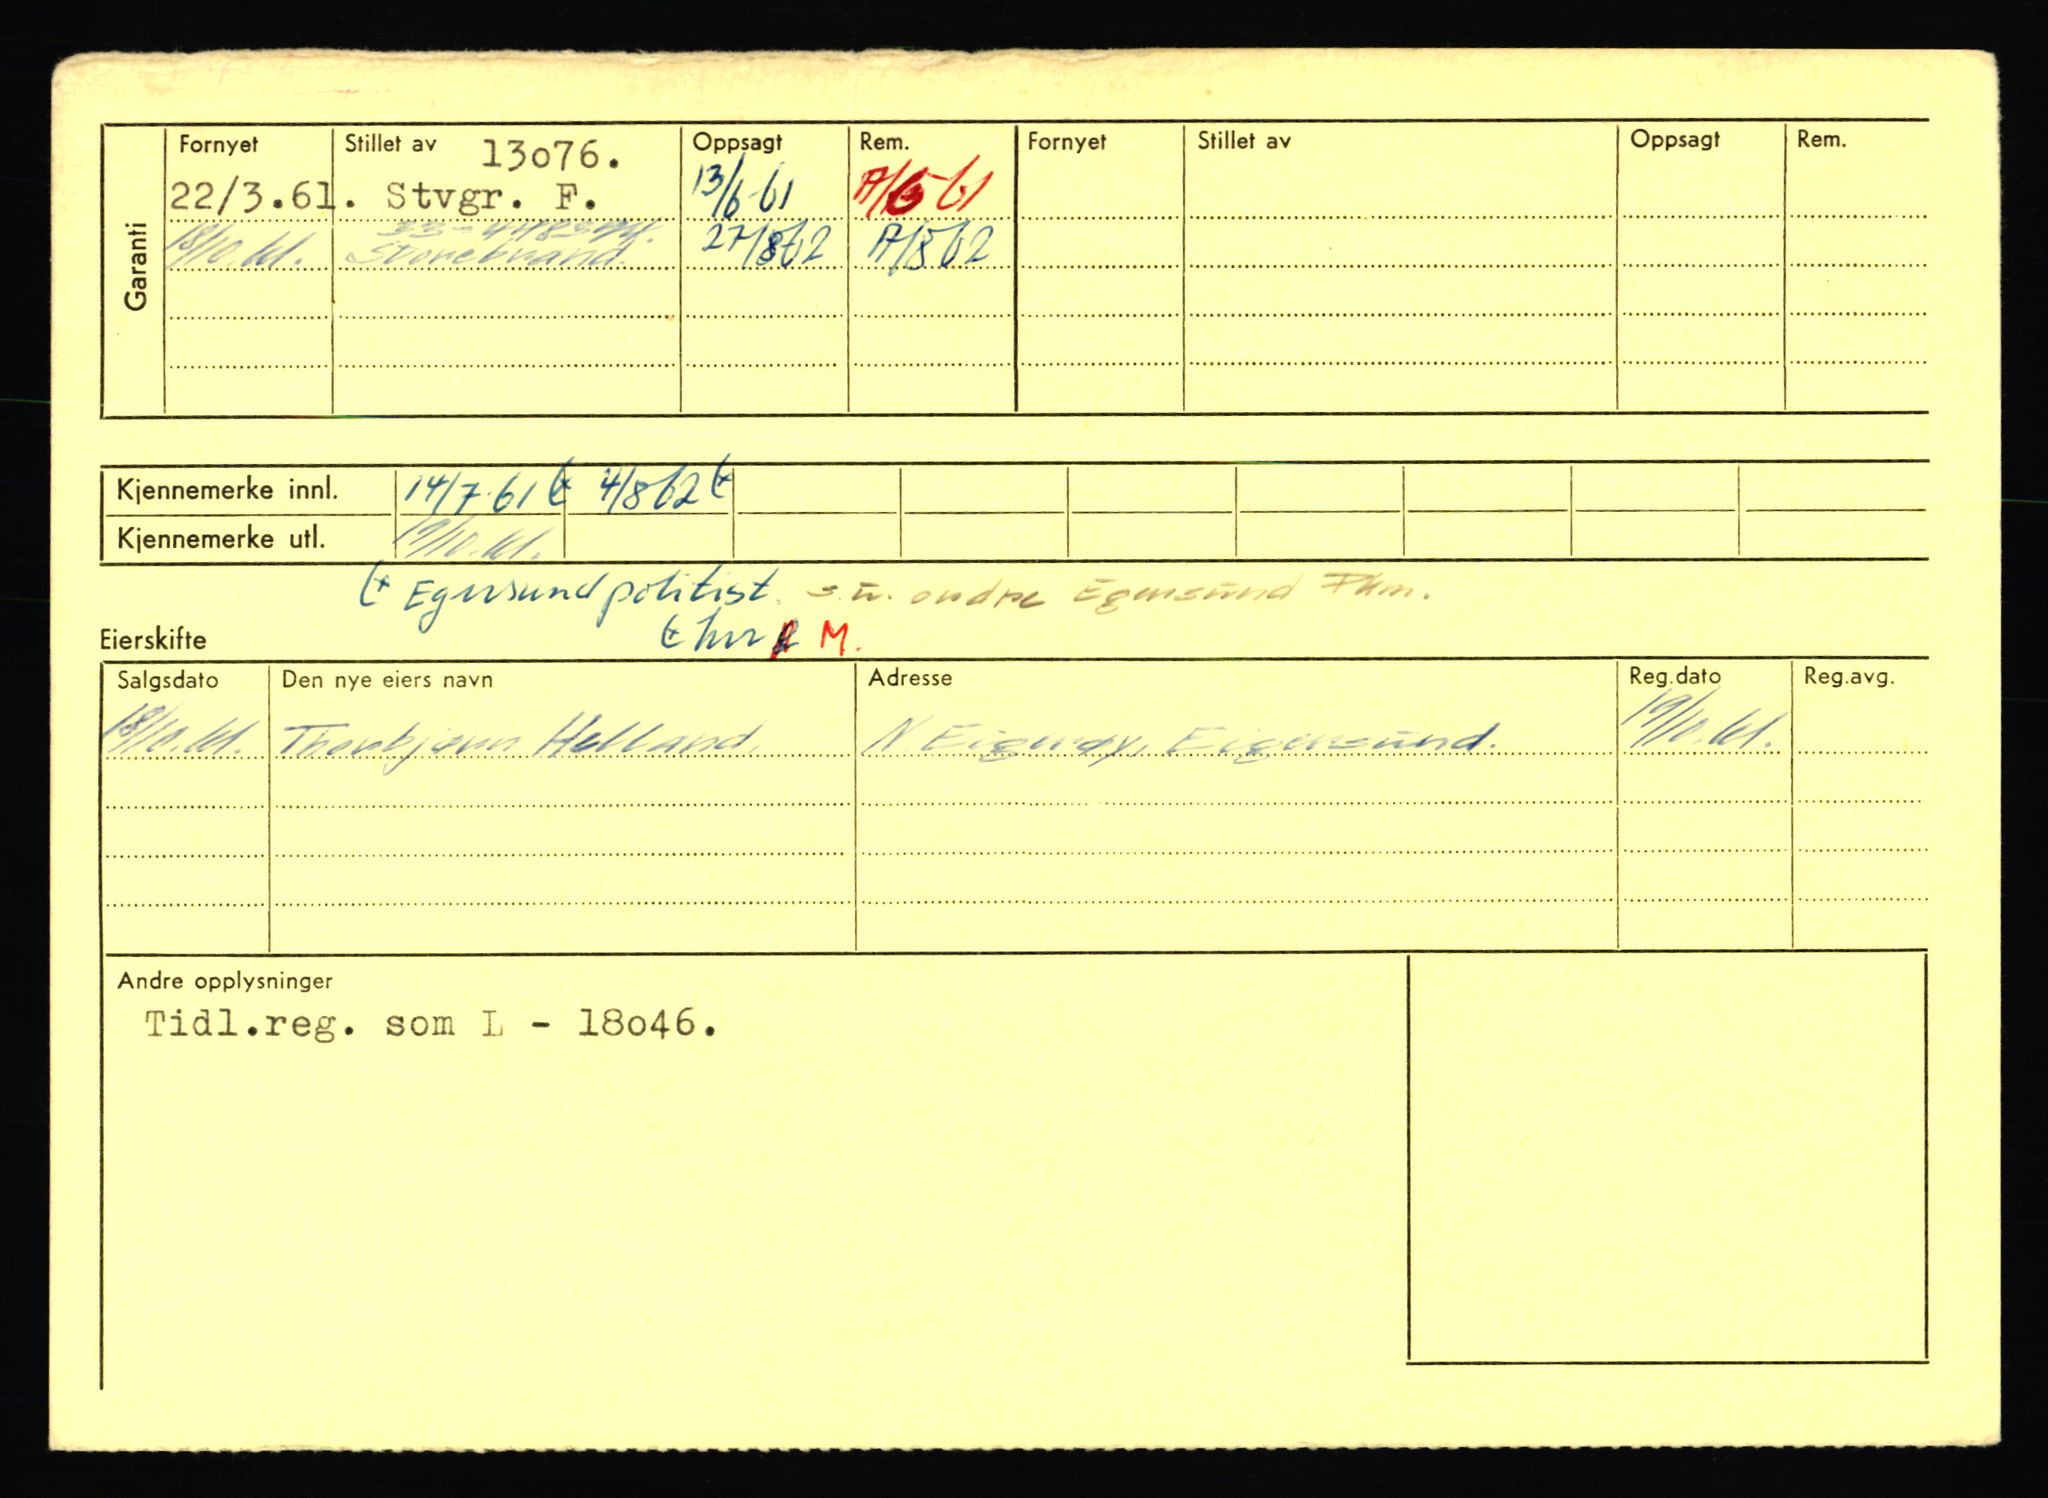 Garanti
Fornyet Stillet av Oppsagt Rem. Fornyet Stillet av Oppsagt Rem.
13o76.
22/3.61. Stvgr. F. 13/6-61
18/10.61. Storebrand. 27/8 62 A/8 62
Kjennemerke innl. 14/7-61 4/8 62
Kjennemerke utl. 19/10.61.
Egersund politist. s.u. andre Egersund
M.
Eierskifte
Salgsdato Den nye eiers navn Adresse Reg.dato Reg.avg.
18/10.61. Thorbjørn Helland. N Eigerøy, Eigersund. 19/10.61.
Andre opplysninger
Tidl.reg. som L - 18o46.